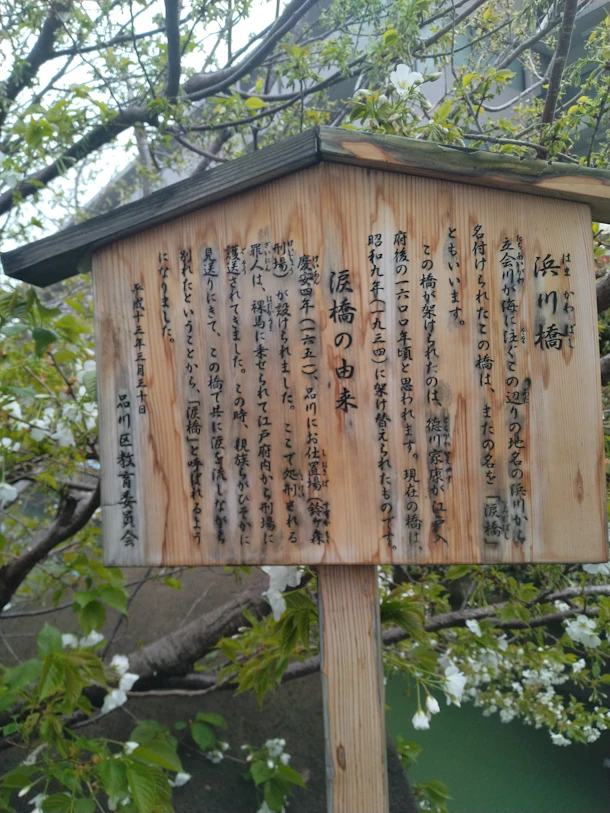 浜川橋
立会川が海に注ぐこの辺りの地名の浜川から
名付けられたこの橋は、またの名を「涙橋」
ともいいます。
この橋が架けられたのは、徳川家康が江戸入
府後の一六〇〇年頃と思われます。現在の橋は、
昭和九年(一九三四)に架け替えられたものです。
涙橋の由来
慶安四年(一六五一)、品川にお仕置場(鈴ヶ森
刑場)が設けられました。ここで処刑される
罪人は、裸馬に乗せられて江戸府内から刑場に
護送されてきました。この時、親族らがひそかに
見送りにきて、この橋で共に涙を流しながら
別れたということから、「涙橋」と呼ばれるよう
になりました。
平成十三年三月三十日
品川区教育委員会